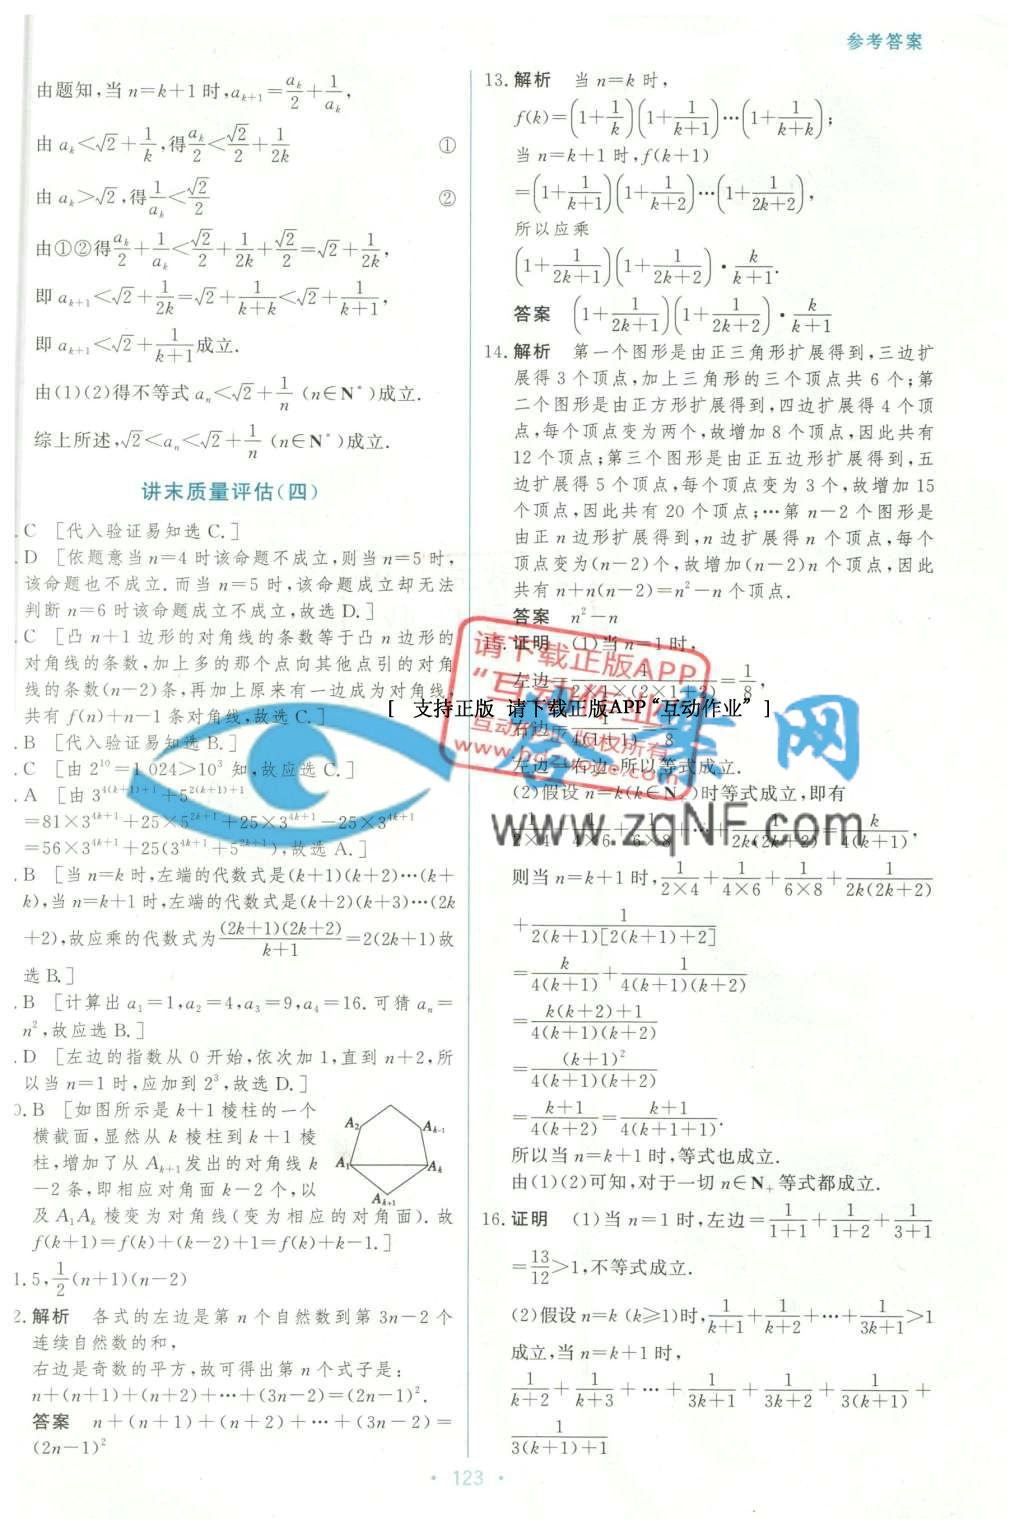 参考答案
由题知,当 n=k+1 时,a_{k+1}=\frac{a_k}{2}+\frac{1}{a_k},
由 a_k<√2+\frac{1}{k},得\frac{a_k}{2}<\frac{√2}{2}+\frac{1}{2k} ①
由 a_k>√2,得\frac{1}{a_k}<\frac{√2}{2} ②
由①②得\frac{a_k}{2}+\frac{1}{a_k}<\frac{√2}{2}+\frac{1}{2k}+\frac{√2}{2}=√2+\frac{1}{2k},
即 a_{k+1}<√2+\frac{1}{2k}=√2+\frac{1}{k+k}<√2+\frac{1}{k+1},
即 a_{k+1}<√2+\frac{1}{k+1}成立.
由(1)(2)得不等式 a_n<√2+\frac{1}{n} (n∈N*)成立.
综上所述,√2<a_n<√2+\frac{1}{n} (n∈N*)成立.
讲末质量评估(四)
. C [代入验证易知选 C.]
. D [依题意当 n=4 时该命题不成立,则当 n=5 时,
该命题也不成立.而当 n=5 时,该命题成立却无法
判断 n=6 时该命题成立不成立,故选 D.]
. C [凸 n+1 边形的对角线的条数等于凸 n 边形的
对角线的条数,加上多的那个点向其他点引的对角
线的条数(n-2)条,再加上原来有一边成为对角线,
共有 f(n)+n-1 条对角线,故选 C.]
. B [代入验证易知选 B.]
. C [由 2^{10}=1 024>10^3 知,故应选 C.]
. A [由 3^{4(k+1)+1}+5^{2(k+1)+1}
=81×3^{4k+1}+25×5^{2k+1}+25×3^{4k+1}-25×3^{4k+1}
=56×3^{4k+1}+25(3^{4k+1}+5^{2k+1}),故选 A.]
. B [当 n=k 时,左端的代数式是(k+1)(k+2)⋯(k+
k),当 n=k+1 时,左端的代数式是(k+2)(k+3)⋯(2k
+2),故应乘的代数式为\frac{(2k+1)(2k+2)}{k+1}=2(2k+1)故
选 B.]
. B [计算出 a_1=1,a_2=4,a_3=9,a_4=16.可猜 a_n=
n^2,故应选 B.]
. D [左边的指数从 0 开始,依次加 1,直到 n+2,所
以当 n=1 时,应加到 2^3,故选 D.]
0. B [如图所示是 k+1 棱柱的一个
横截面,显然从 k 棱柱到 k+1 棱
柱,增加了从 A_{k+1}发出的对角线 k
-2 条,即相应对角面 k-2 个,以
及 A_1A_k 棱变为对角线(变为相应的对角面).故
f(k+1)=f(k)+(k-2)+1=f(k)+k-1.]
A_2
A_{k-1}
A_1
A_k
A_{k+1}
1. 5,\frac{1}{2}(n+1)(n-2)
2. 解析 各式的左边是第 n 个自然数到第 3n-2 个
连续自然数的和,
右边是奇数的平方,故可得出第 n 个式子是:
n+(n+1)+(n+2)+⋯+(3n-2)=(2n-1)^2.
答案 n+(n+1)+(n+2)+⋯+(3n-2)=
(2n-1)^2
13. 解析 当 n=k 时,
f(k)=(1+\frac{1}{k})(1+\frac{1}{k+1})⋯(1+\frac{1}{k+k});
当 n=k+1 时,f(k+1)
=(1+\frac{1}{k+1})(1+\frac{1}{k+2})⋯(1+\frac{1}{2k+2}),
所以应乘
(1+\frac{1}{2k+1})(1+\frac{1}{2k+2})·\frac{k}{k+1}.
答案 (1+\frac{1}{2k+1})(1+\frac{1}{2k+2})·\frac{k}{k+1}
14. 解析 第一个图形是由正三角形扩展得到,三边扩
展得 3 个顶点,加上三角形的三个顶点共 6 个;第
二个图形是由正方形扩展得到,四边扩展得 4 个顶
点,每个顶点变为两个,故增加 8 个顶点,因此共有
12 个顶点;第三个图形是由正五边形扩展得到,五
边扩展得 5 个顶点,每个顶点变为 3 个,故增加 15
个顶点,因此共有 20 个顶点;⋯第 n-2 个图形是
由正 n 边形扩展得到,n 边扩展得 n 个顶点,每个
顶点变为(n-2)个,故增加(n-2)n 个顶点,因此
共有 n+n(n-2)=n^2-n 个顶点.
答案 n^2-n
15. 证明 (1)当 n=1 时,
左边=\frac{1}{2×1×(2×1+2)}=\frac{1}{8},
右边=\frac{1}{4(1+1)}=\frac{1}{8}
左边=右边,所以等式成立.
(2)假设 n=k(k∈N)时等式成立,即有
\frac{1}{2×4}+\frac{1}{4×6}+\frac{1}{6×8}+⋯+\frac{1}{2k(2k+2)}=\frac{k}{4(k+1)},
则当 n=k+1 时,\frac{1}{2×4}+\frac{1}{4×6}+\frac{1}{6×8}+\frac{1}{2k(2k+2)}
+\frac{1}{2(k+1)[2(k+1)+2]}
=\frac{k}{4(k+1)}+\frac{1}{4(k+1)(k+2)}
=\frac{k(k+2)+1}{4(k+1)(k+2)}
=\frac{(k+1)^2}{4(k+1)(k+2)}
=\frac{k+1}{4(k+2)}=\frac{k+1}{4(k+1+1)}.
所以当 n=k+1 时,等式也成立.
由(1)(2)可知,对于一切 n∈N_+等式都成立.
16. 证明 (1)当 n=1 时,左边=\frac{1}{1+1}+\frac{1}{1+2}+\frac{1}{3+1}
=\frac{13}{12}>1,不等式成立.
(2)假设 n=k (k≥1)时,\frac{1}{k+1}+\frac{1}{k+2}+⋯+\frac{1}{3k+1}>1
成立,当 n=k+1 时,
\frac{1}{k+2}+\frac{1}{k+3}+⋯+\frac{1}{3k+1}+\frac{1}{3k+2}+\frac{1}{3(k+1)}+
\frac{1}{3(k+1)+1}
请下载正版APP
“互动作业”
互动作业 版权所有
[ 支持正版 请下载正版APP“互动作业” ]
www.zqNF.com
· 123 ·